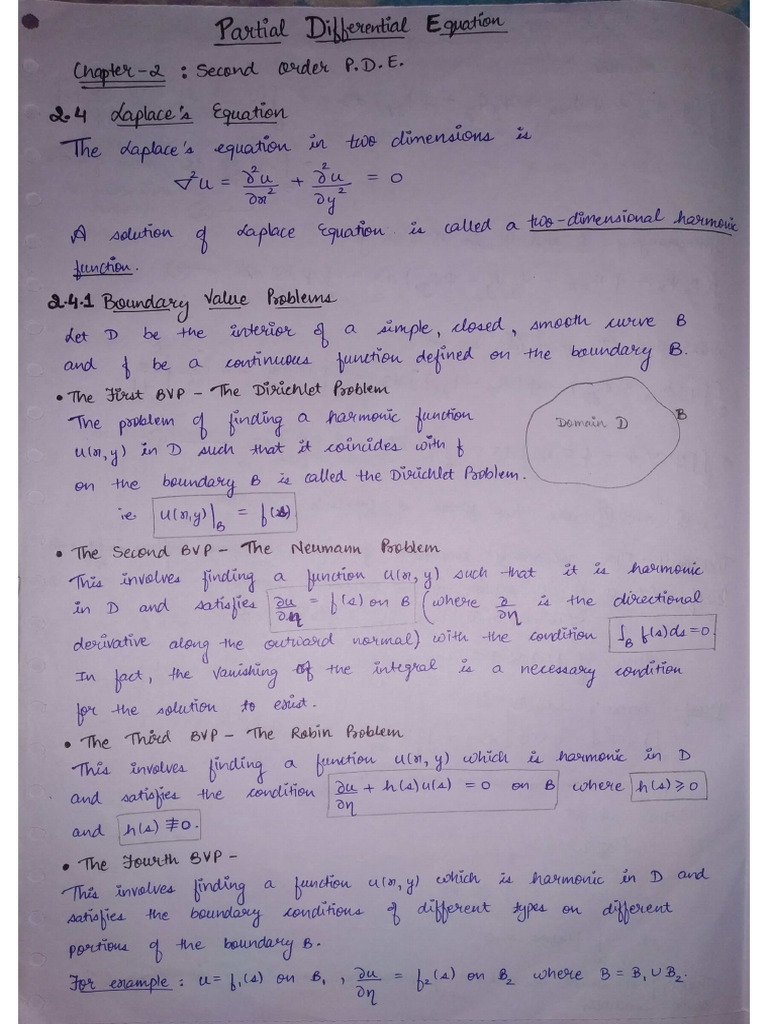 Partial Differential Equation
Chapter-2 : Second Order P.D.E.
2.4 Laplace's Equation
The Laplace's equation in two dimensions is
∇²u = ∂²u/∂x² + ∂²u/∂y² = 0
A solution of Laplace Equation is called a two-dimensional harmonic
function.
2.4.1 Boundary Value Problems
Let D be the interior of a simple, closed, smooth curve B
and f be a continuous function defined on the boundary B.
• The First BVP - The Dirichlet Problem
The problem of finding a harmonic function
u(x,y) in D such that it coincides with f
on the boundary B is called the Dirichlet Problem.
ie u(x,y)|_B = f(s)
Domain D
B
• The Second BVP - The Neumann Problem
This involves finding a function u(x,y) such that it is harmonic
in D and satisfies ∂u/∂η = f(s) on B (where ∂/∂η is the directional
derivative along the outward normal) with the condition ∫_B f(s)ds=0.
In fact, the vanishing of the integral is a necessary condition
for the solution to exist.
• The Third BVP - The Robin Problem
This involves finding a function u(x,y) which is harmonic in D
and satisfies the condition ∂u/∂η + h(s)u(s) = 0 on B where h(s) ≥ 0
and h(s) ≢ 0.
• The Fourth BVP -
This involves finding a function u(x,y) which is harmonic in D and
satisfies the boundary conditions of different types on different
portions of the boundary B.
For example : u = f₁(s) on B₁ , ∂u/∂η = f₂(s) on B₂ where B = B₁ ∪ B₂.